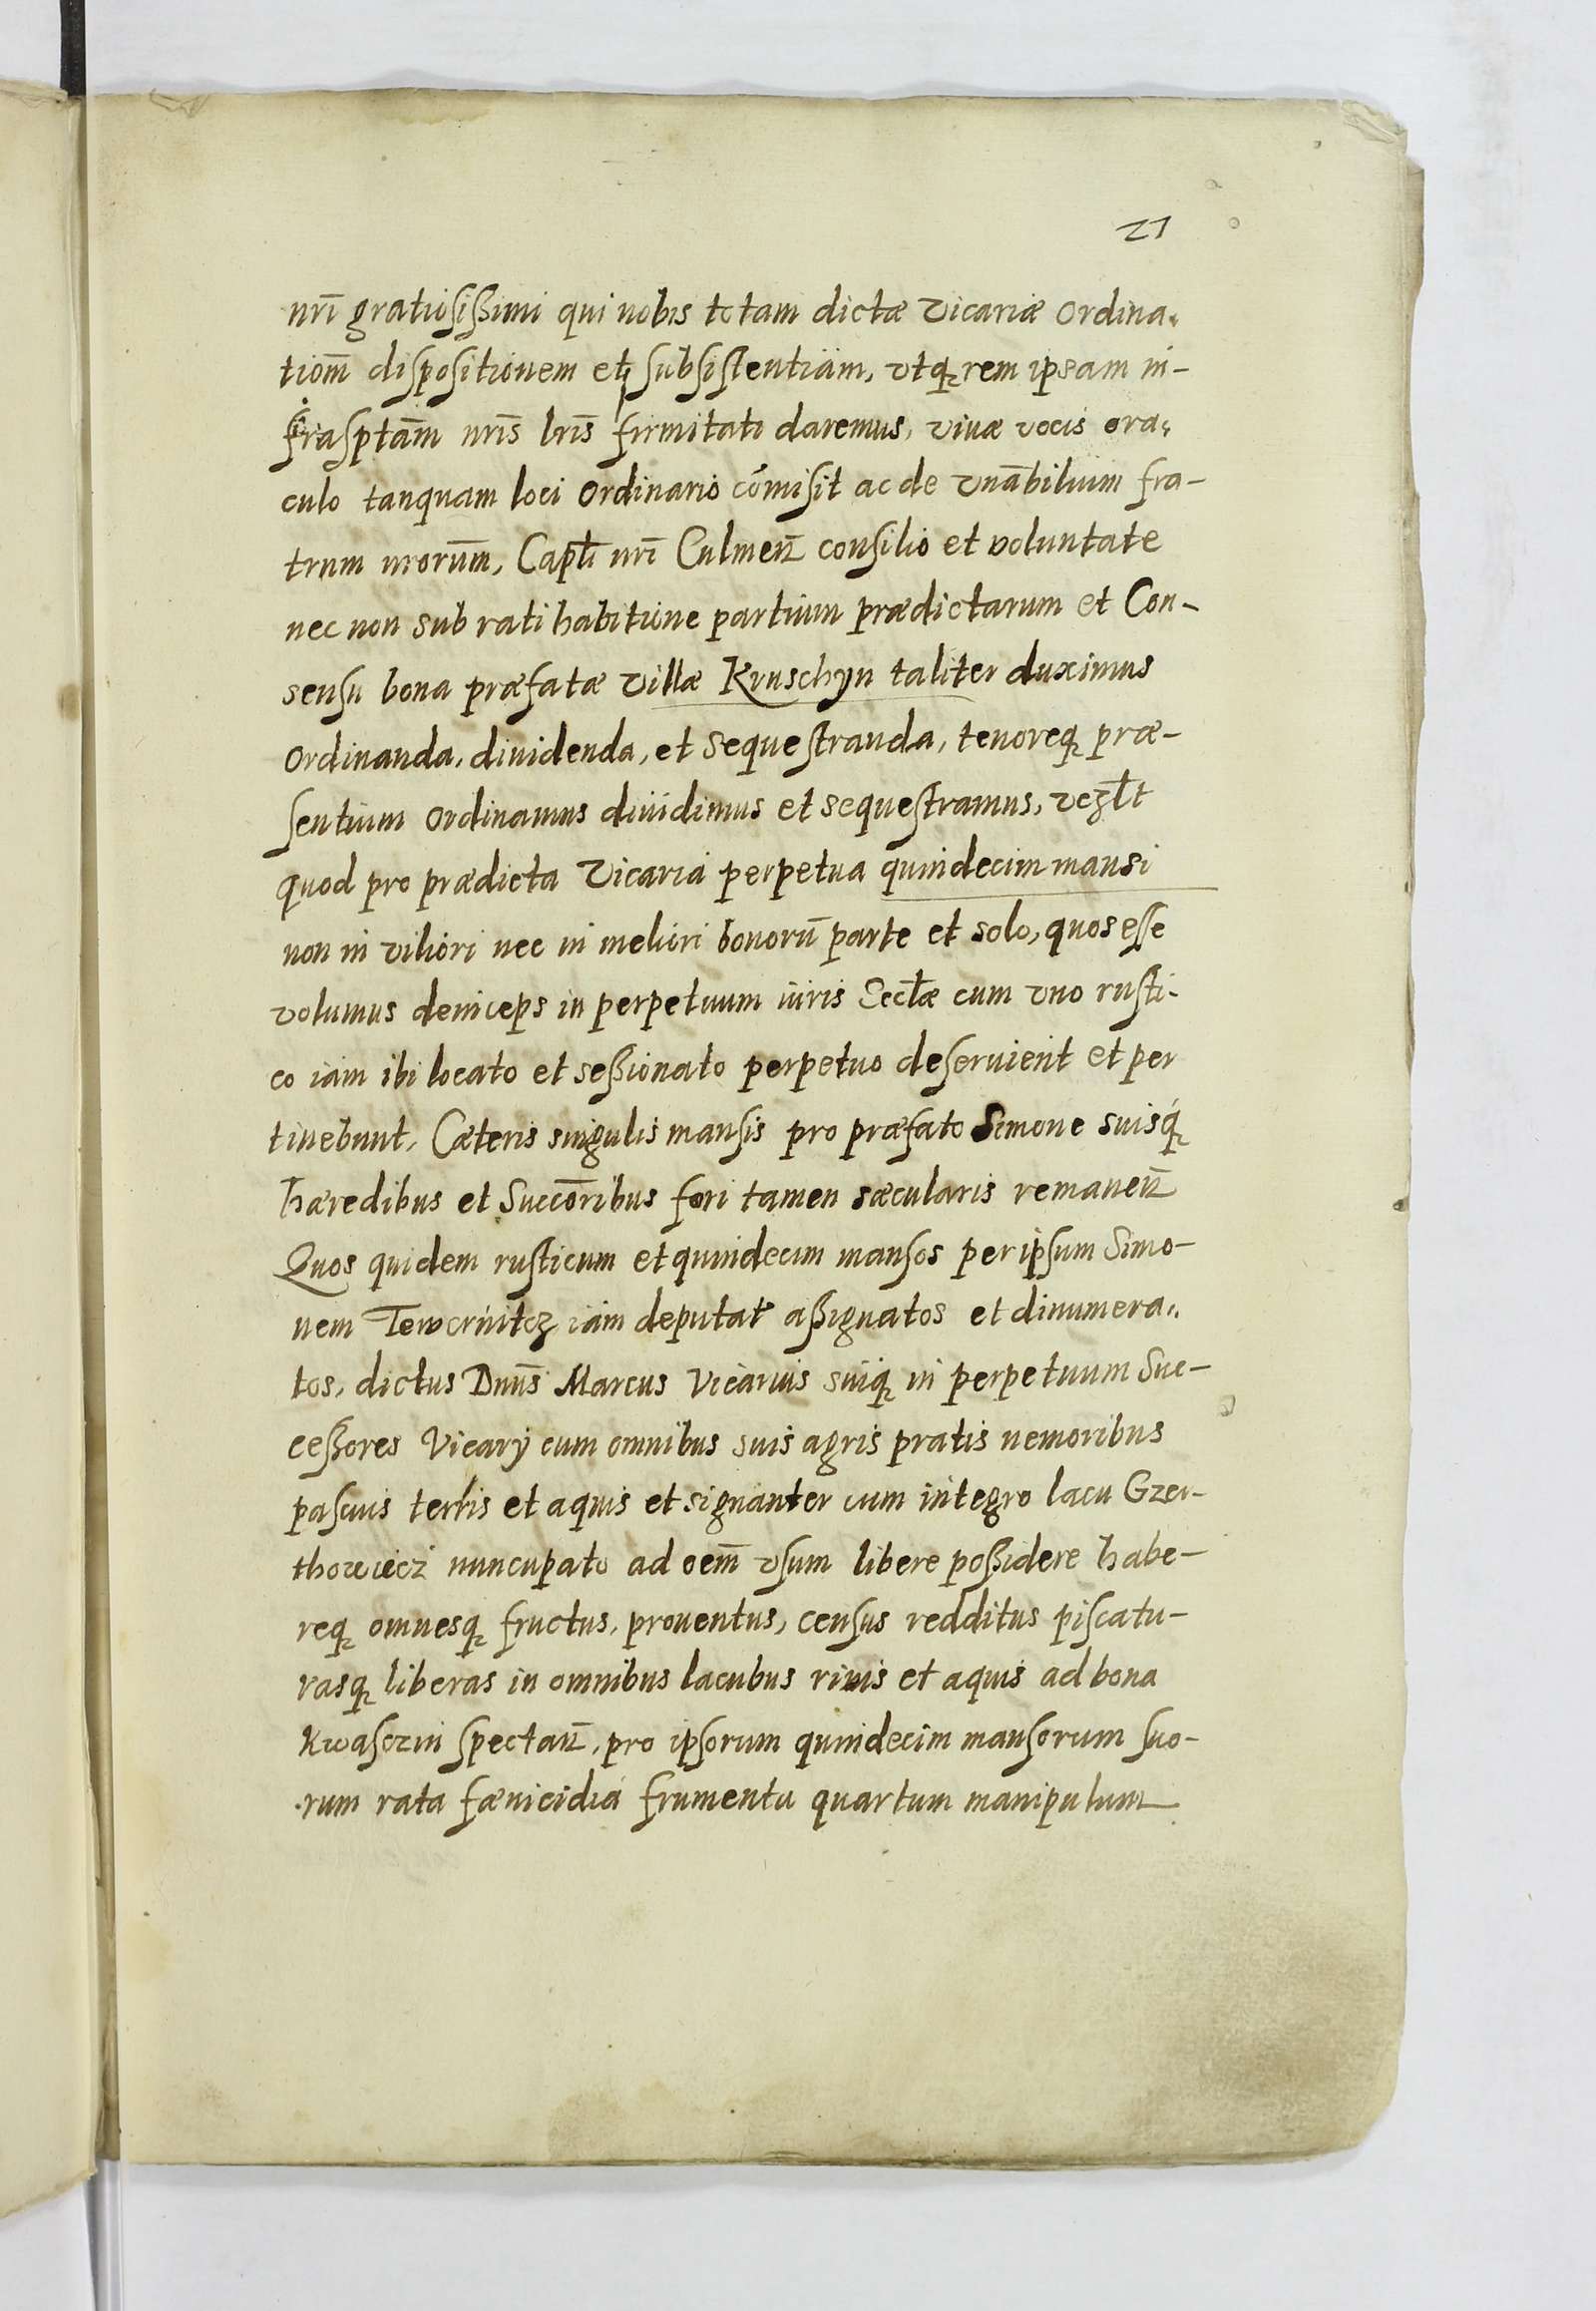 21
nr̄i gratiosißimi qui nobis totam dictæ Vicariæ Ordina-
tiom̄ dispositionem et subsistentiam, vtq; rem ipsam in-
frasptam̄ nr̄is lr̄is firmitati daremus, viuæ vocis ora-
culo tanquam loci Ordinario com̄isit ac de Vnābilium fra-
trum nrorum̄, Capt̄i nr̄i Culmen̄ consilio et voluntate
nec non sub rati habitione partium prædictarum et Con-
sensu bona præfatæ Villæ Kruschyn taliter duximus
Ordinanda, diuidenda, et sequestranda, tenoreq; præ-
sentium Ordinamus diuidimus et sequestramus, vezl̄t
quod pro prædicta Vicaria perpetua quindecim mansi
non in viliori nec in meliori bonorū parte et solo, quos esse
volumus deinceps in perpetuum iuris Eccl̄æ cum vno rusti-
co iam ibi locato et seßionato perpetuo deseruient et per
tinebunt, Cæteris singulis mansis pro præfato Simone suisq;
hæredibus et Succōribus fori tamen sæcularis remanen̄
Quos quidem rusticum et quindecim mansos per ipsum Simo-
nem Tewcrnitcz iam deputat aßignatos et dinumera-
tos, dictus Dnus̄ Marcus Vicarius suiq; in perpetuum Suc-
ceßores Vicarÿ cum omnibus suis agris pratis nemoribus
pascuis terris et aquis et signanter cum integro lacu Gzer-
thowiecz nuncupato ad oem̄ vsum libere poßidere habe-
req; omnesq; fructus, prouentus, census redditus piscatu-
rasq; liberas in omnibus lacubus riuis et aquis ad bona
Kwasczin spectan̄, pro ipsorum quindecim mansorum suo-
rum rata fænicidia frumenta quartum manipulum